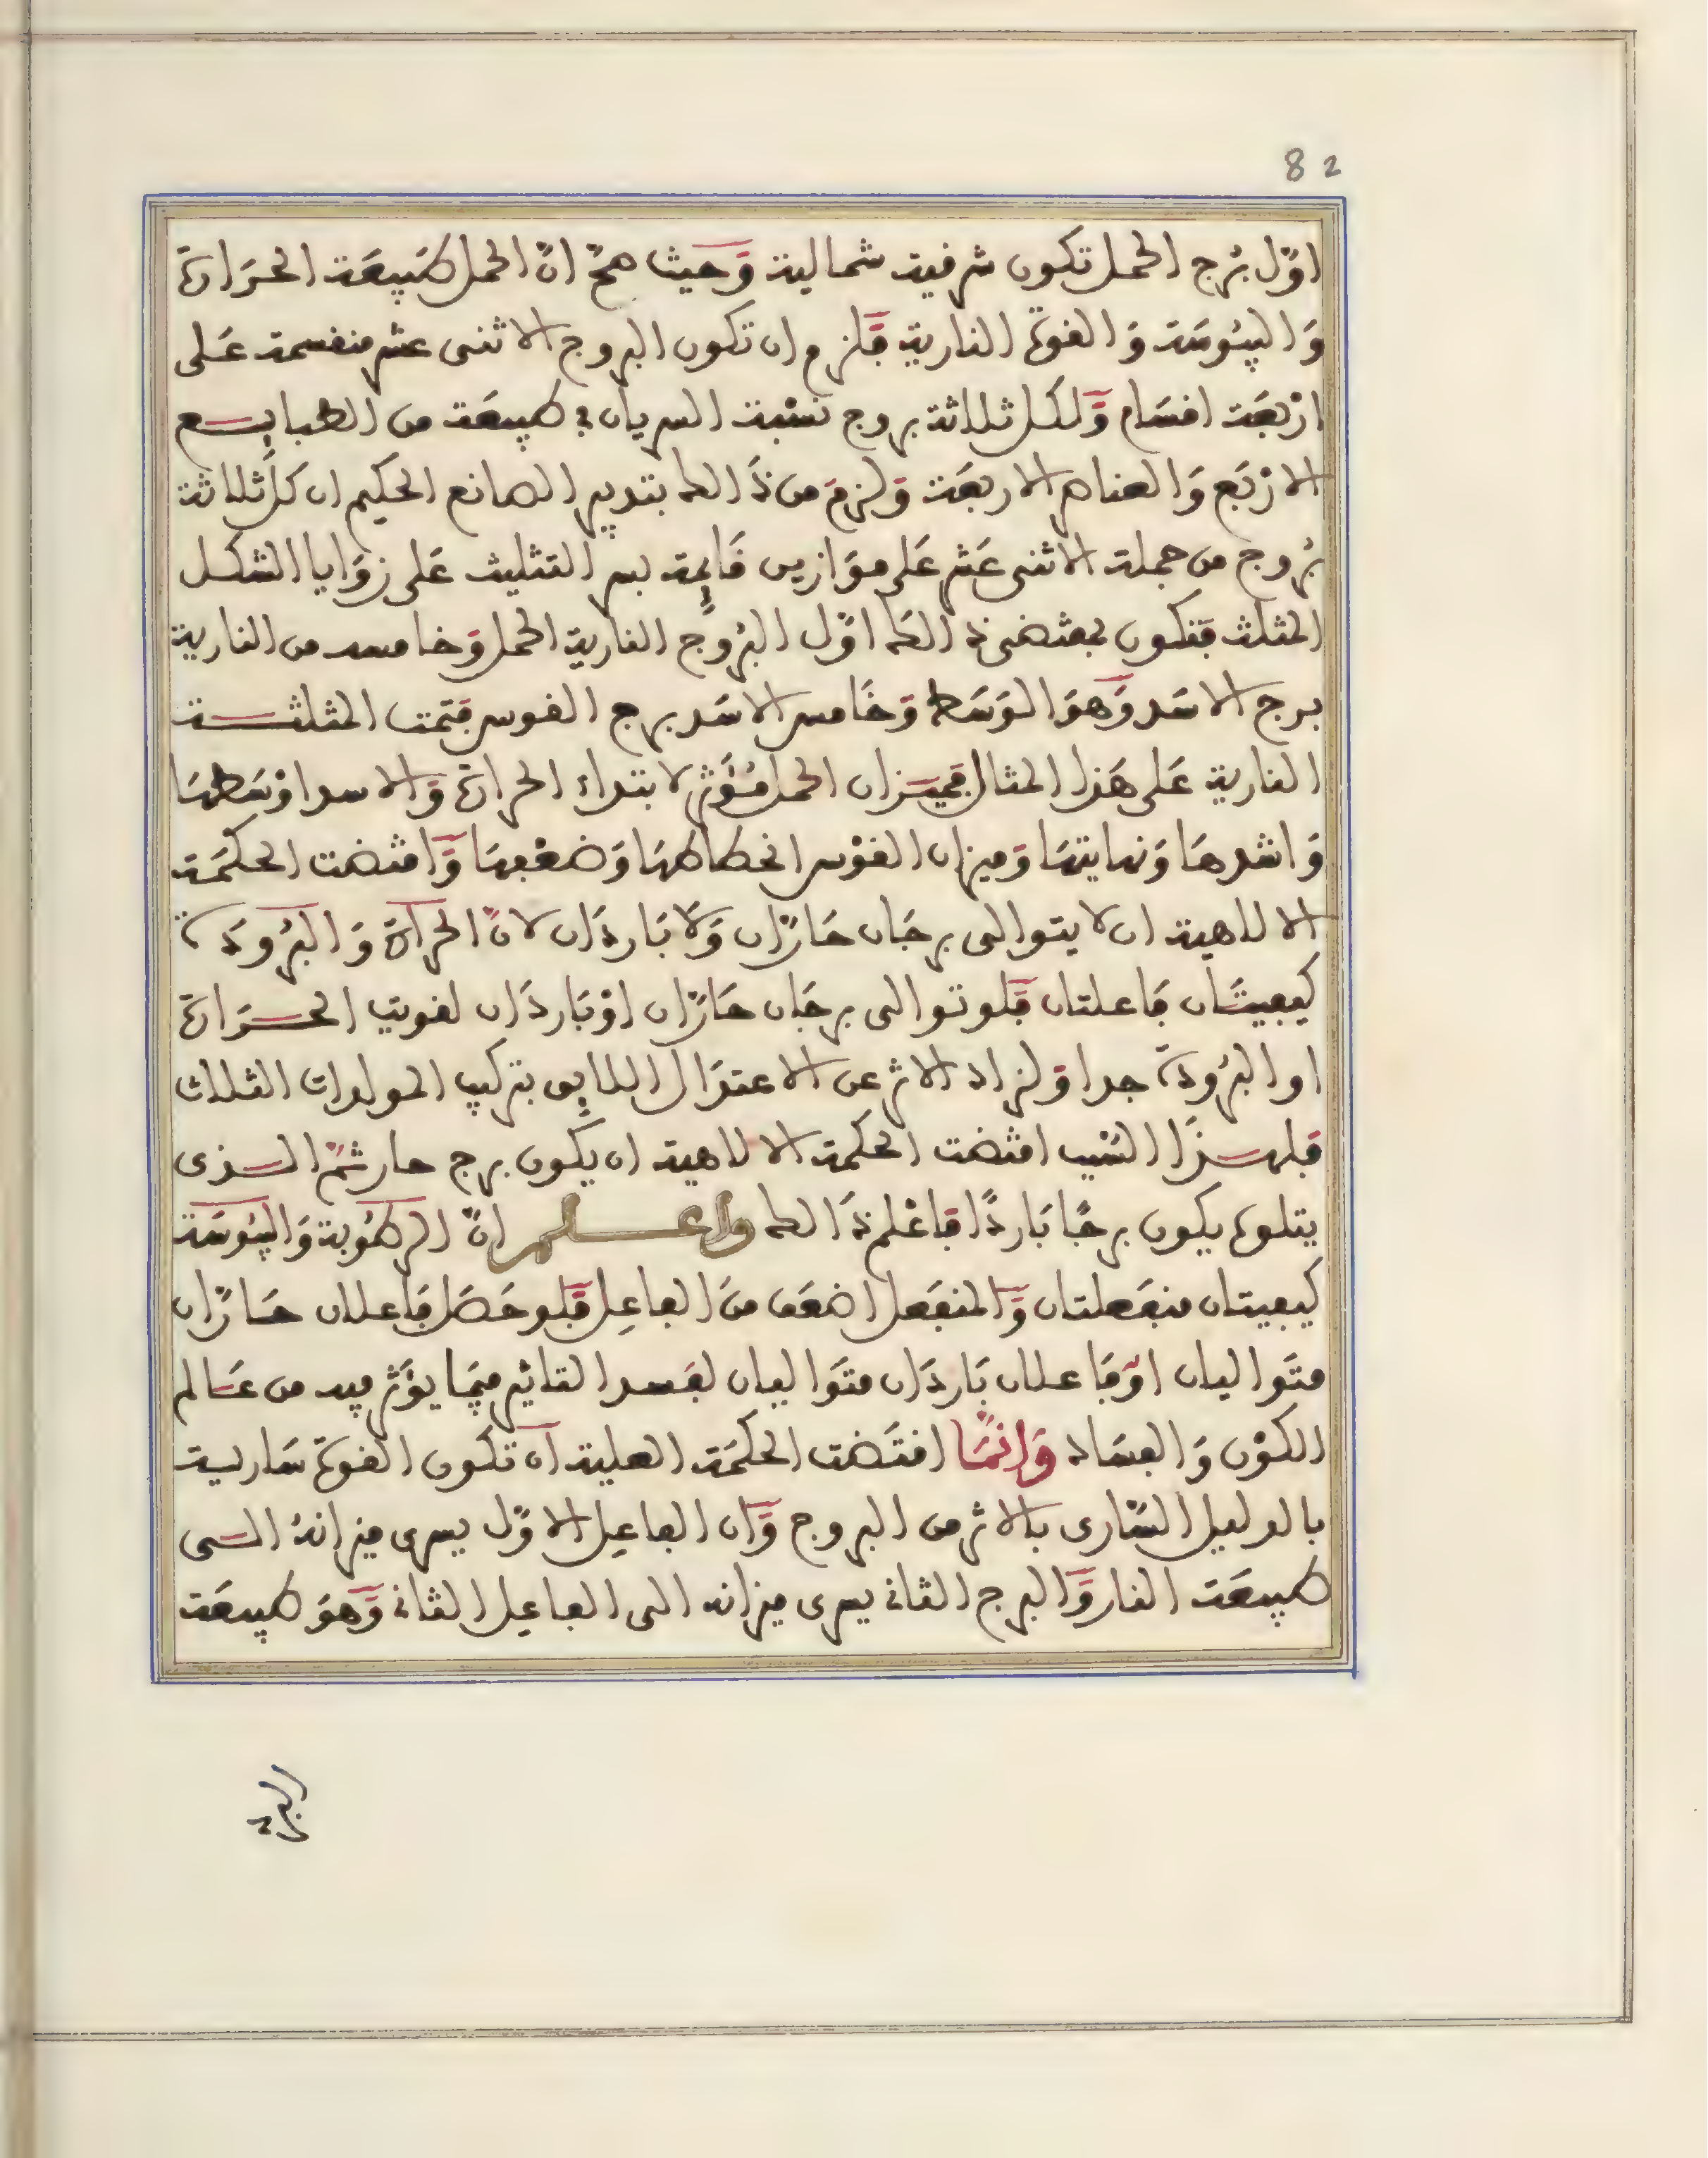 82
اوّل بُرج الحمل تكون شرقية شمالية وَحيث صحّ انّ الحمل طبيعَة الحرَارة
وَاليبُوسَة وَالقوة النارية فَلزم ان تكون البروج الاثنى عشر منقسمة عَلى
ارْبعَة اقسَام وَلكل ثلاثة بروج نسْبة السريان في طبيعَة من الطبايع
الارْبَع وَالعناصر الاربعَة وَلزمَ من ذَالك بتدبير الصانع الحكيم ان كلّ ثلاثة
بُروج من جملة الاثنى عَشر عَلى موَازين قَايمة بسر التثليث عَلى زوَايا الشكل
المثلث فتكون بمقتضى ذالك اوّل البرُوج النارية الحمل وَخامسه من النارية
برج الاسَد وَهوَ الوَسَط وَخَامس الاسَد برج القوس فتمت المثلثة
النارية عَلى هَذا المثال فميزان الحمل مُؤَثر لابتداء الحرارة وَالاسد اوْسَطهَا
وَاشدهَا وَنهايتهَا وَميزان القوْس انحطاطهَا وَضعْفهَا وَاقتضت الحكمَة
الالاهية ان لا يتوالى برجَان حَارّان وَلا بَاردَان لانّ الحرَارة وَالبرُودَة
كيفيتَان فَاعلتان فَلو توالى برجَان حَارّان اوْ بَاردَان لقويت الحرَارة
او البرُودَة جدا وَلزاد الاثر عن الاعتدَال اللايق بتركيب المولدات الثلاث
فَلهذَا السّبب اقتضت الحكمة الالاهية ان يكون برج حار ثمّ الذى
يتلوه يكون برجًا بَاردًا فَاعْلم ذَالك واعلم انّ الرطُوبة وَاليبُوسَة
كيفيتان منفعَلتان وَالمنفعَل اضعَف منَ الفاعِل فَلو حَصَل فَاعلان حَارّان
متوَاليان اوْ فَاعلان بَاردَان متوَاليان لفسد التاثير فيمَا يؤثر فيه من عَالم
الكوْن وَالفسَاد وَانمَّا اقتَضت الحكمَة العلية ان تكون القوة سَارية
بالدليل السَّارى بالاثر من البروج وَان الفاعِل الاوّل يسرى ميزانهُ الى
طبيعَة النار وَالبرج الثانى يسرى ميزانه الى الفاعِل الثانى وَهوَ طبيعَة